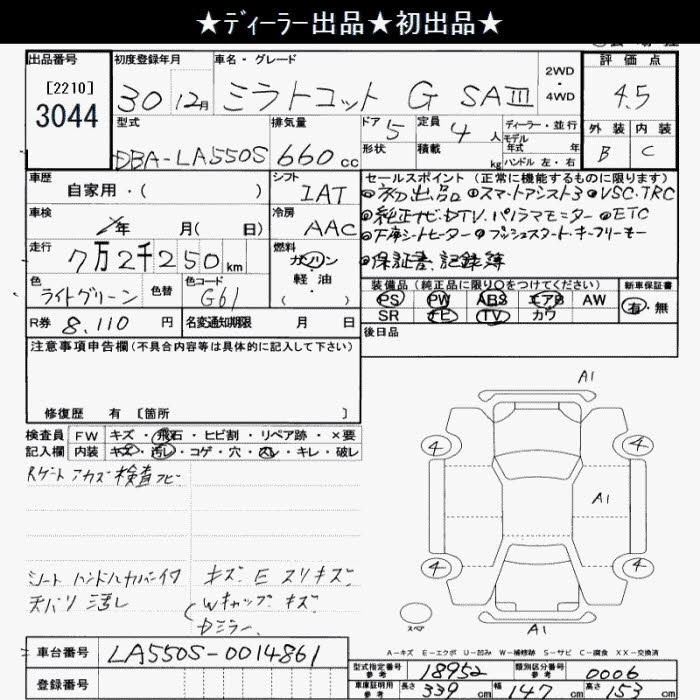 ★ディーラー出品★初出品★
出品番号 初度登録年月 車名・グレード 評価点
[2210] 3044
30 12月 ミラトコット G SAⅢ 2WD・4WD 4.5
型式 排気量 ドア 5 定員 4人 ディーラー・並行 外装 内装
モデル年式 年
DBA-LA550S 660cc 形状 積載 kg ハンドル 左・右 B C
車歴 シフト セールスポイント(正常に機能するものに限ります)
自家用・( ) IAT
初出品 スマートアシスト3 VSC.TRC
車検 年 月( 日) 冷房 AAC
純正ナビ.DTV.パノラマモニター ETC
走行 7万2千250km 燃料 ガソリン・軽油・( )
プッシュスタート・キーフリーキー
保証書.記録簿
色 ライトグリーン 色替 色コード G61
装備品(純正品に限り〇をつけてください) 新車保証書
PS PW ABS エアB AW 有・無
R券 8,110円 名変通知期限 月 日
SR TV カワ
後日品
注意事項申告欄(不具合内容等は具体的に記入して下さい)
修復歴 有 [箇所 ]
検査員 FW キズ・飛石・ヒビ割・リペア跡・×要
記入欄 内装 キズ・汚レ・コゲ・穴・スレ・キレ・破レ
A1
4 4
A1
4 4
スペア
A1
Rゲート アカズ 検査
シート ハンドルカバー
天バリ 汚レ
キズ.E スリキズ.
Wキャップ キズ
Dミラー.
A-キズ E-エクボ U-凹み W-補修跡 S-サビ C-腐食 XX-交換済
車台番号 LA550S-0014861
登録番号
型式指定番号 参考 18952 類別区分番号 参考 0006
車庫証明用 参考 長さ 339cm 幅 147cm 高さ 153cm